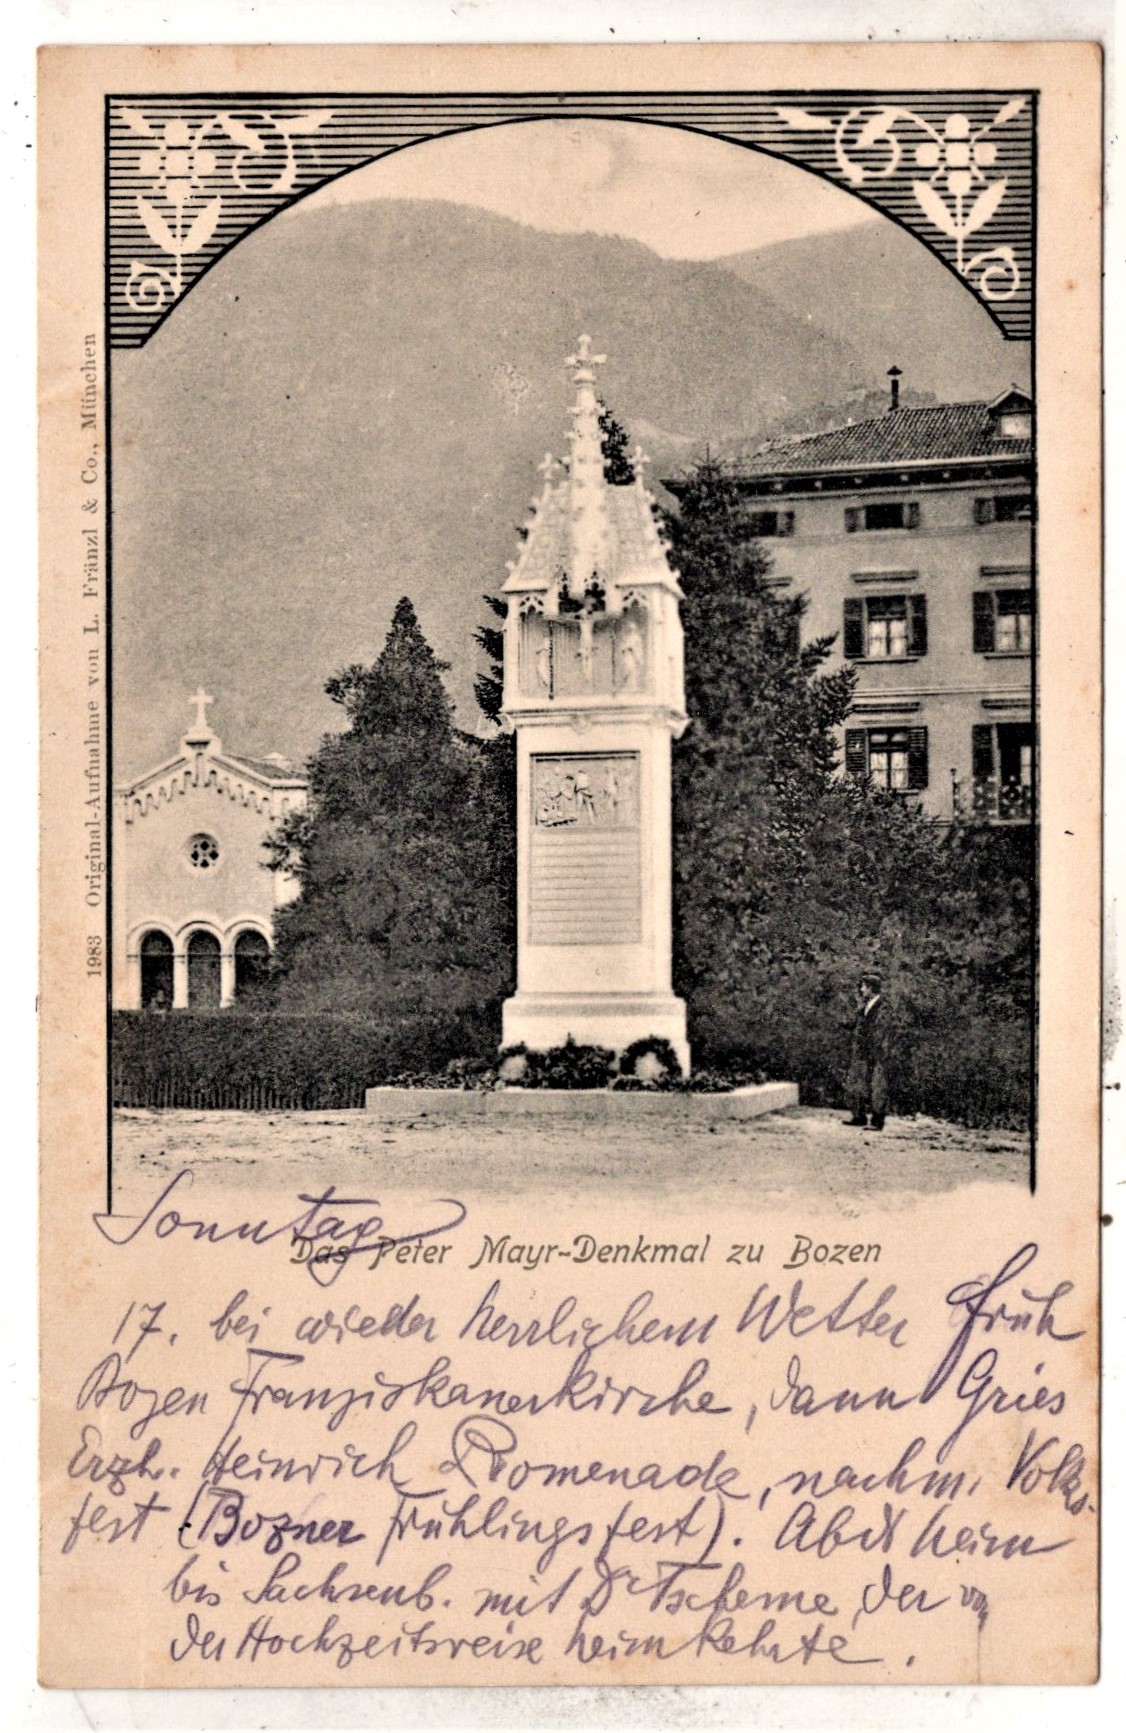 1983 Original-Aufnahme von L. Fränzl & Co., München
Das Peter Mayr-Denkmal zu Bozen
Sonntag
17. bei wieder herrlichem Wetter früh
Bozen Franziskanerkirche, dann Gries
Erzh. Heinrich Promenade, nachm. Volks-
fest (Bozner Frühlingsfest). Abds heim
bis Sachsenb. mit Dr Tscherne, der von
der Hochzeitsreise heimkehrte.